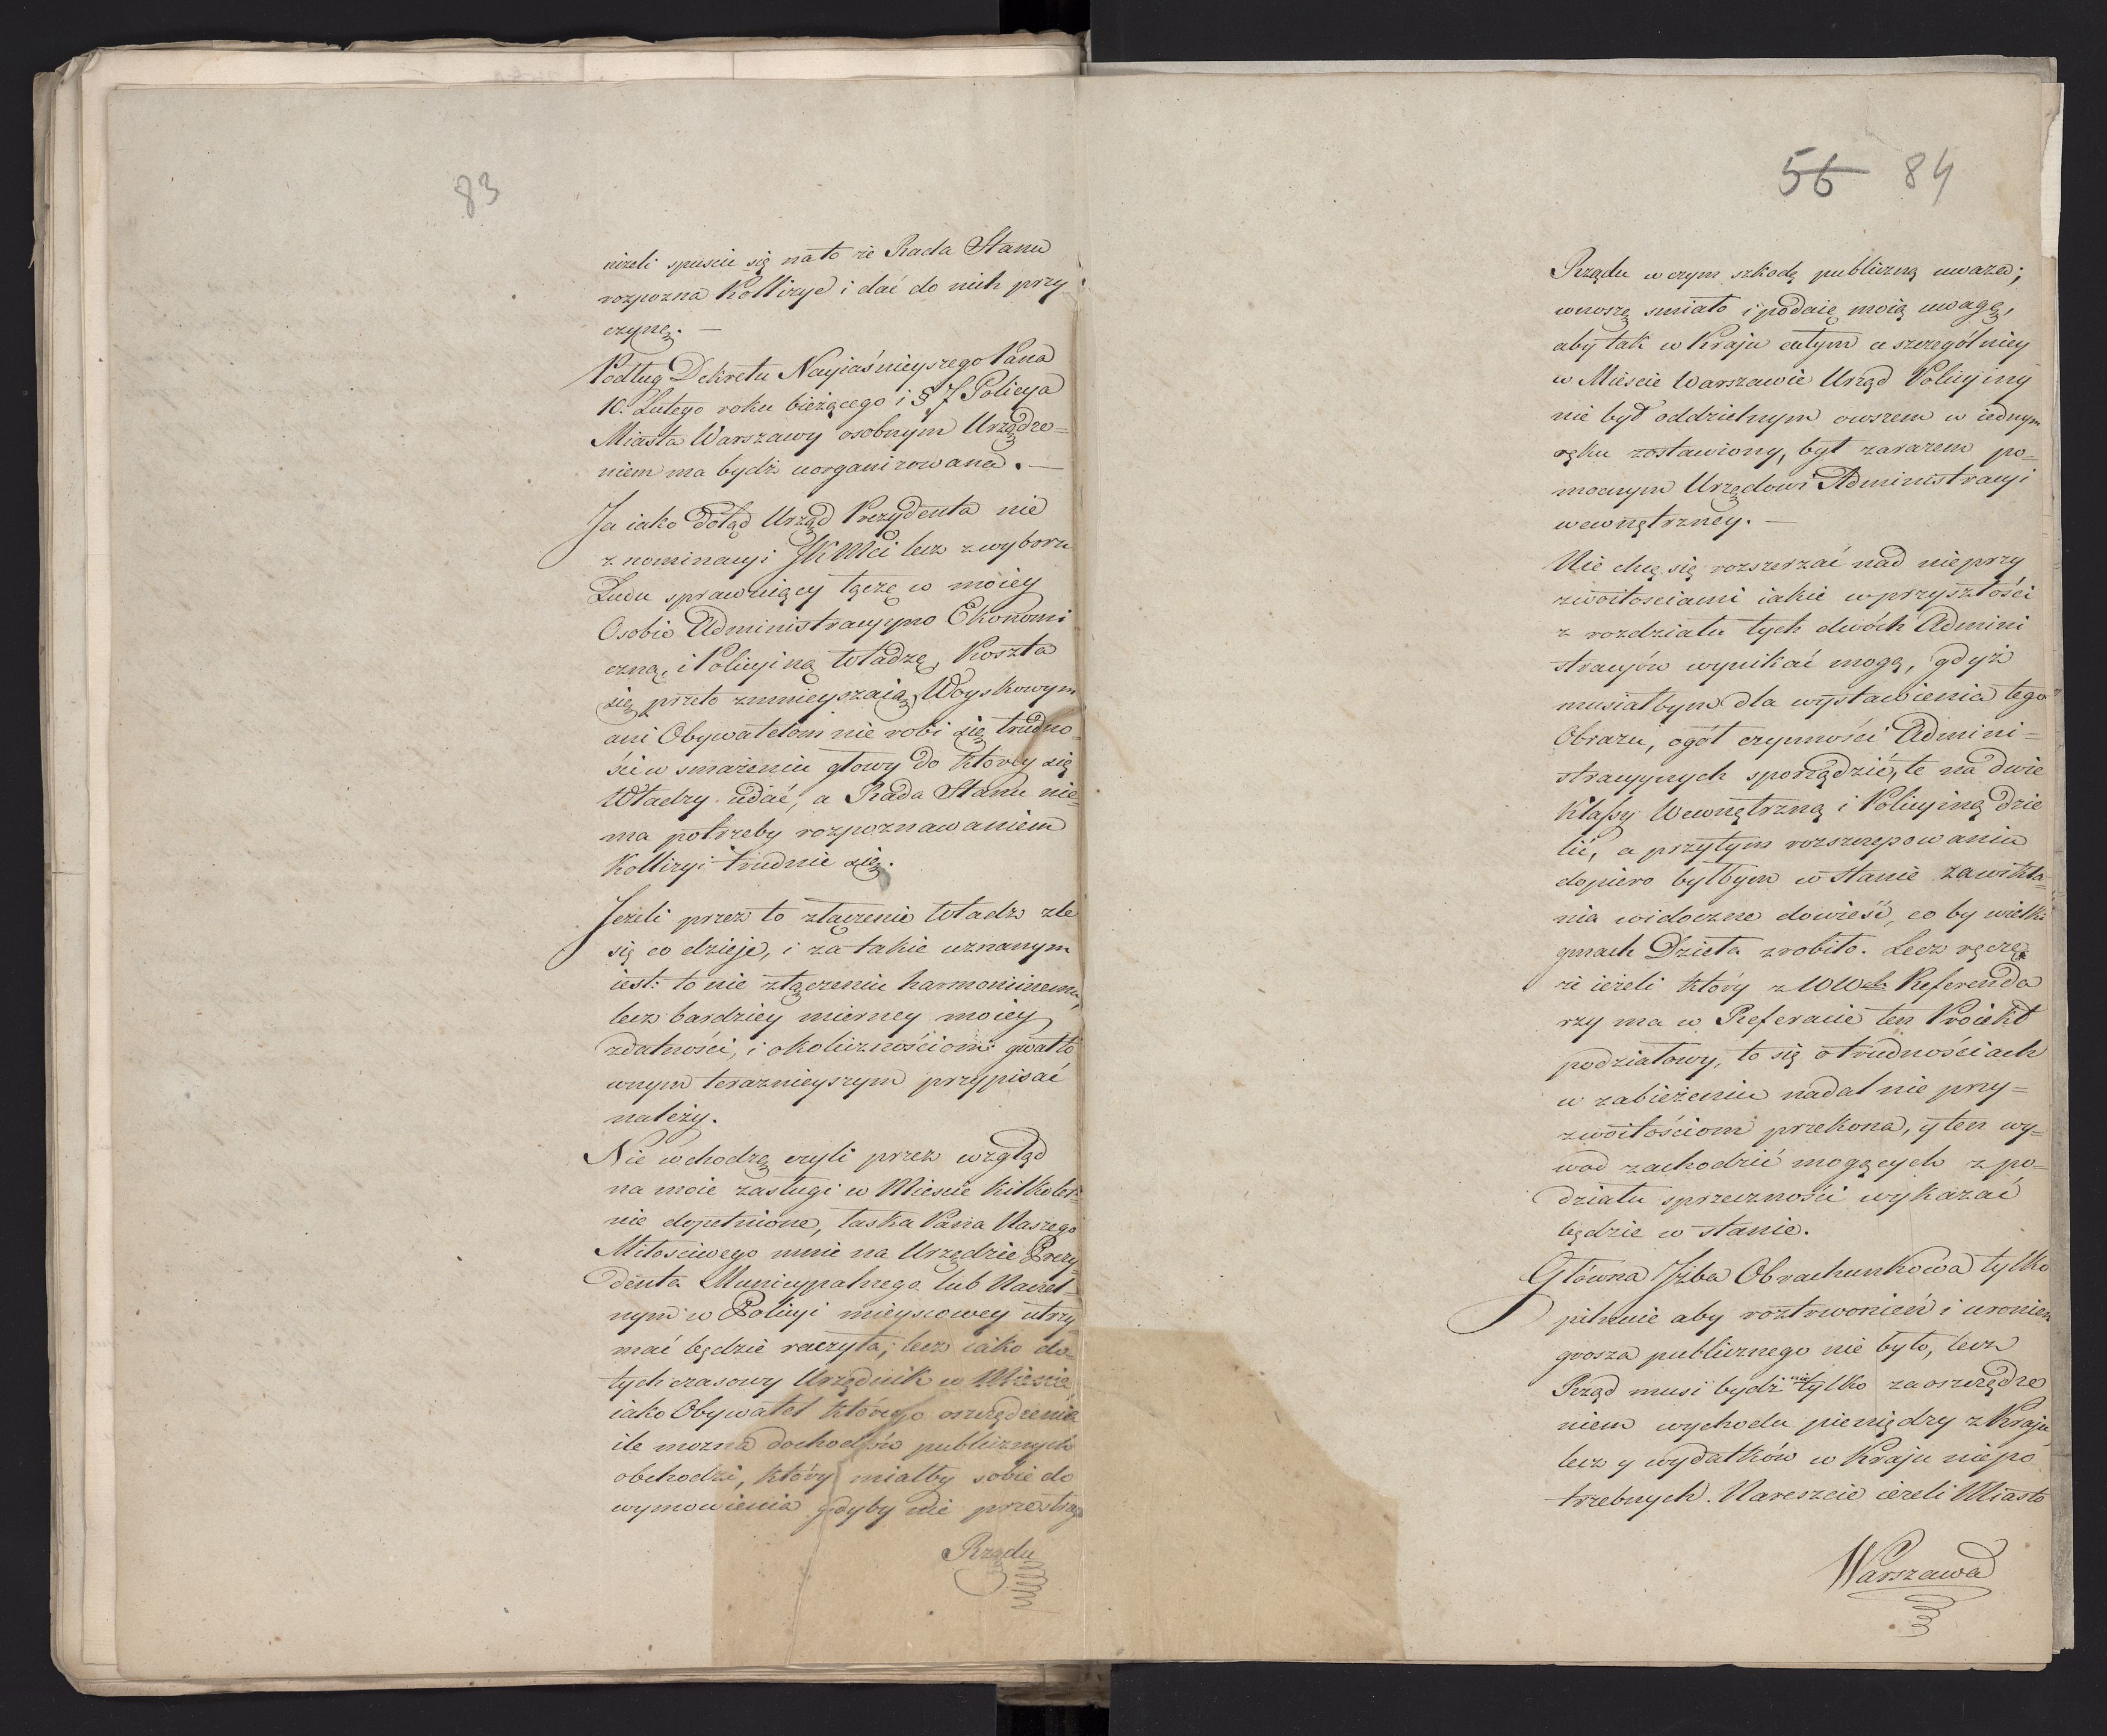 83
niżeli spuscic się na to że Rada Stanu
rozpozna Kollizye i dać do nich przy
czynę. —
Podług Dekretu Nayiaśnieyszego Pana
10. Lutego roku bieżącego i § 7 Policya
Miasta Warszawy osobnym Urządze=
niem ma bydź uorganizowana. —
Ja iako dotąd Urząd Prezydenta nie
z nominacyi JKMci lecz z wyboru
Ludu sprawuiący łączę w moiey
Osobie Administracyyno Ekonomi
czną, i Policyiną władzę, Koszta
się przeto zmnieyszaią, Woyskowym
ani Obywatelom nie robi się trudno=
ści w smażeniu głowy do którey się
Władzy udać, a Rada Stanu nie=
ma potrzeby rozpoznawaniem
Kollizyi trudnić się.
Jeżeli przez to złączenie władz złe
się co dzieje, i za takie uznanym
iest: to nie złączeniu harmoniinemu,
lecz bardziey mierney moiey
zdatności, i okolicznościom gwałto
wnym teraznieyszym przypisać
należy.
Nie wchodzę czyli przez wzgląd
na moie zasługi w Miescie kilkolet=
nie dopełnione, łaska Pana Naszego
Miłościwego mnie na Urzędzie Prezy=
denta Municypalnego lub Naczel=
nym w Policyi mieyscowey utrzy
mać będzie raczyła; lecz iako do=
tychczasowy Urzędnik w Miescie
iako Obywatel którego oszczędzenie
ile można dochodów publicznych
obchodzi, który miałby sobie do
wymowienia gdyby nie przestrzegł
Rządu
56 84
Rządu w czym szkodę publiczną uważa;
wnoszę smiało i podaię moią uwagę,
aby tak w Kraju całym a szczególniey
w Miescie Warszawie Urząd Policyiny
nie był oddzielnym owszem w iednym
ręku zostawiony, był zarazem po=
mocnym Urzędowi Administracyi
wewnętrzney. —
Nie chcę się rozszerzać nad nieprzy
zwoitosciami iakie w przyszłości
z rozdziału tych dwóch Admini
stracyów wynikać mogą, gdyż
musiałbym dla wystawienia tego
Obrazu, ogół czynności Admini=
stracyynych sporządzić, te na dwie
Klassy Wewnętrzną i Policyiną dzie
lić, a przytym rozszczepowaniu
dopiero byłbym w stanie zawikła=
nia widoczne dowieść, co by wielki
gmach Dzieła zrobiło. Lecz ręczę
że ieżeli który z WWch Referenda
rzy ma w Referacie ten Proiekt
podziałowy, to się o trudnościach
w zabieżeniu nadal nie przy=
zwoitościom przekona, y ten wy=
wod zachodzić mogących z po=
działu sprzeczności wykazać
będzie w stanie.
Główna Jzba Obrachunkowa tylko
pilnuie aby roztrwonień i uronień
grosza publicznego nie było, lecz
Rząd musi bydź nie tylko za oszczędze
niem wychodu pieniędzy z Kraju
lecz y wydatków w Kraju niepo
trzebnych. Nareszcie ieżeli Miasto
Warszawa